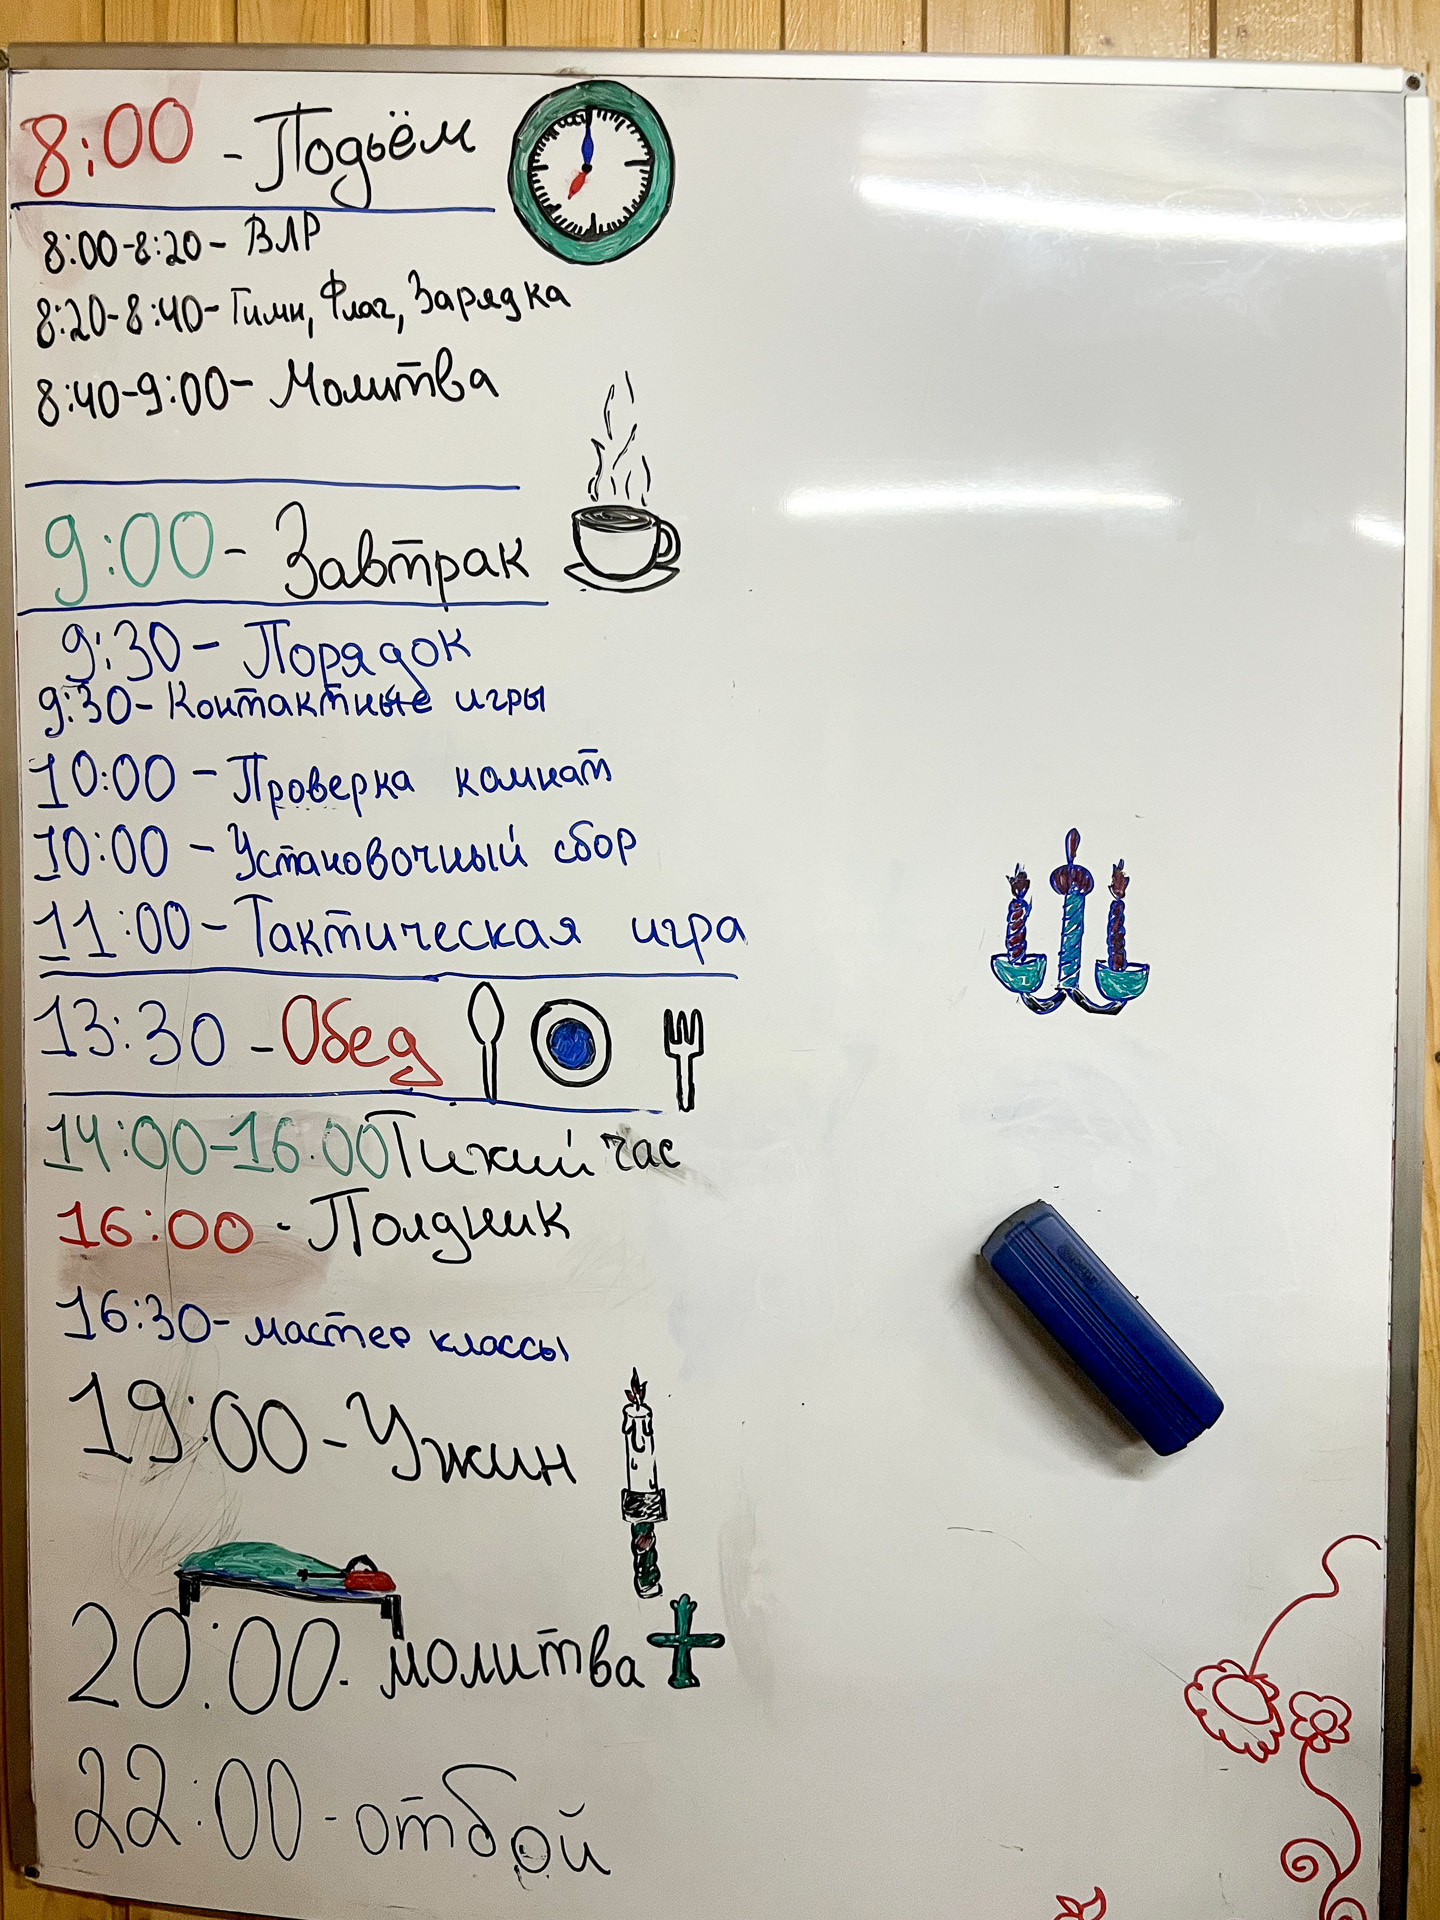 8:00 - Подьём
8:00-8:20- ВЛР
8:20-8:40- Гимн, Флаг, Зарядка
8:40-9:00- Молитва
9:00- Завтрак
9:30- Порядок
9:30- Контактные игры
10:00 - Проверка комнат
10:00 - Установочный сбор
11:00- Тактическая игра
13:30 - Обед
14:00-16.00 Тихий час
16:00 - Полдник
16:30- мастер классы
19:00- Ужин
20:00. молитва
22:00 - отбой